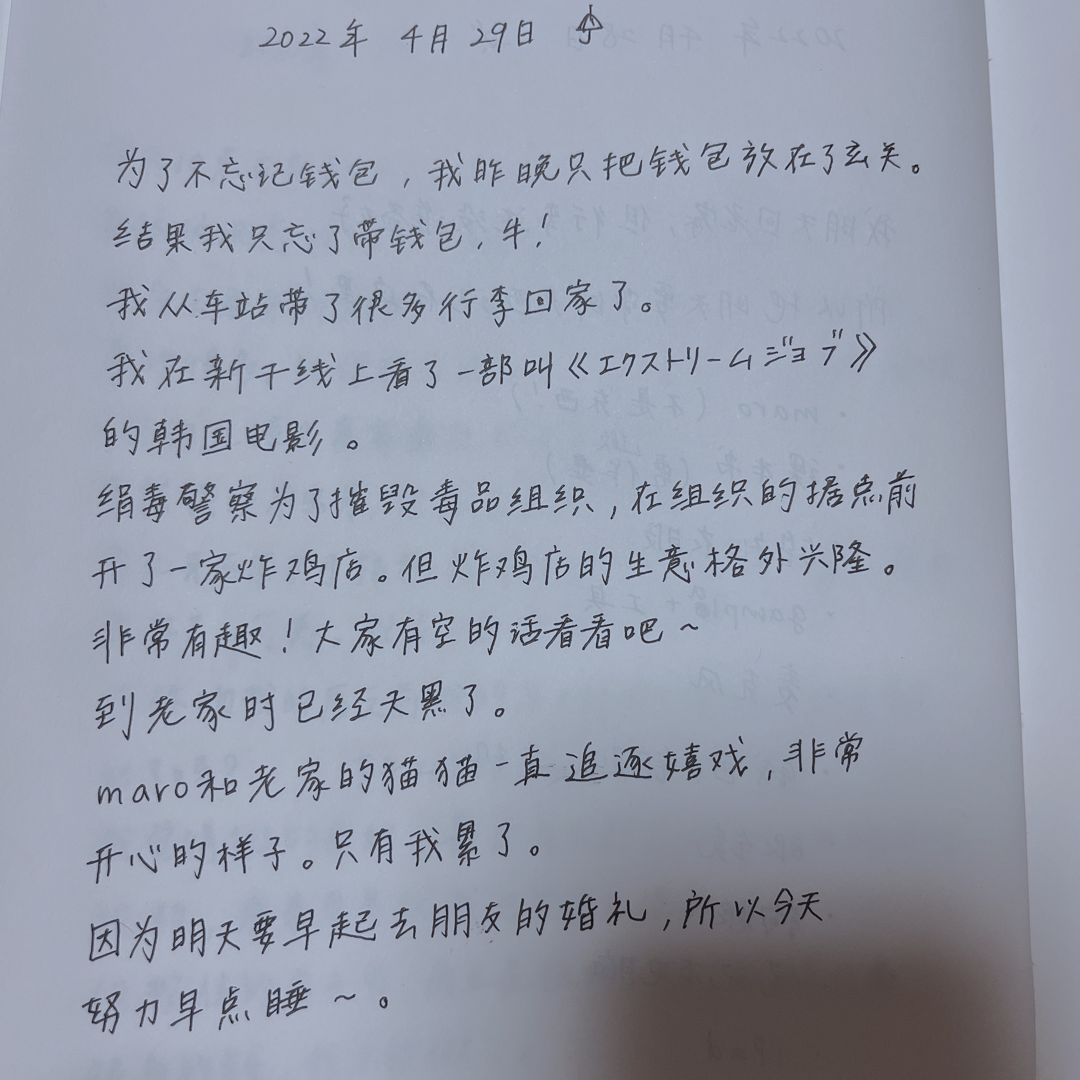 2022年 4月29日
为了不忘记钱包，我昨晚只把钱包放在了玄关。
结果我只忘了带钱包，牛！
我从车站带了很多行李回家了。
我在新干线上看了一部叫《エクストリームジョブ》
的韩国电影。
缉毒警察为了摧毁毒品组织，在组织的据点前
开了一家炸鸡店。但炸鸡店的生意格外兴隆。
非常有趣！大家有空的话看看吧～
到老家时已经天黑了。
maro和老家的猫猫一直追逐嬉戏，非常
开心的样子。只有我累了。
因为明天要早起去朋友的婚礼，所以今天
努力早点睡～。